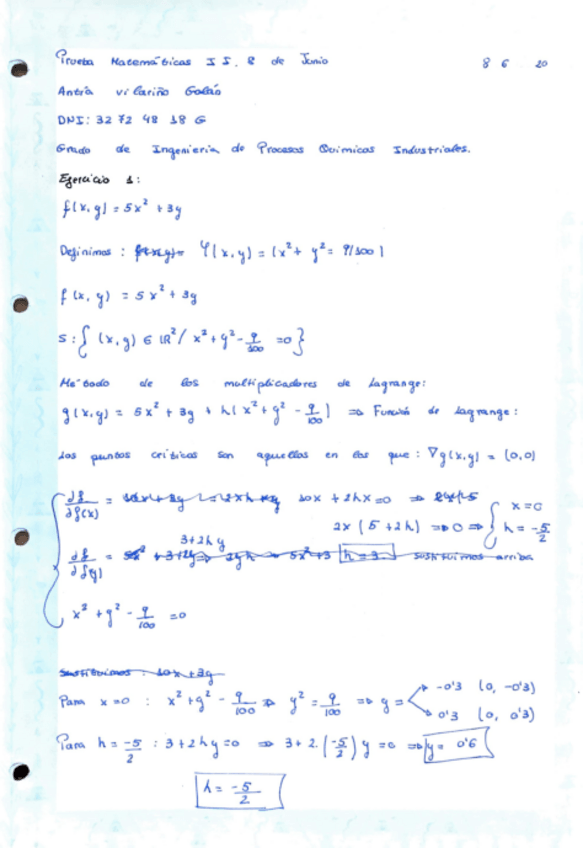 Prueba Matemáticas II. 8 de Junio 8 6 20
Antía Vilariño Galán
DNI: 32 72 48 18 G
Grado de Ingeniería de Procesos Químicos Industriales.
Ejercicio 1:
f(x,y) = 5x² + 3y
Definimos : φ(x,y) = (x² + y² = 9/100)
f(x,y) = 5x² + 3y
S:{ (x,y) ∈ ℝ² / x² + y² - 9/100 = 0 }
Método de los multiplicadores de Lagrange:
g(x,y) = 5x² + 3y + h(x² + y² - 9/100) ⇒ Función de Lagrange:
Los puntos críticos son aquellos en los que : ∇g(x,y) = (0,0)
∂f/∂f(x) = 10x + 2hx = 0 ⇒
2x (5 + 2h) ⇒ 0 ⇒ { x = 0 h = -5/2
∂f/∂f(y) = 3 + 2hy h = 3 sustituimos arriba
x² + y² - 9/100 = 0
Sustituimos : 10x + 3y
Para x=0 : x² + y² - 9/100 ⇒ y² = 9/100 ⇒ y = -0'3 (0, -0'3)
0'3 (0, 0'3)
Para h = -5/2 : 3 + 2hy = 0 ⇒ 3 + 2·(-5/2) y = 0 ⇒ y = 0'6
h = -5/2